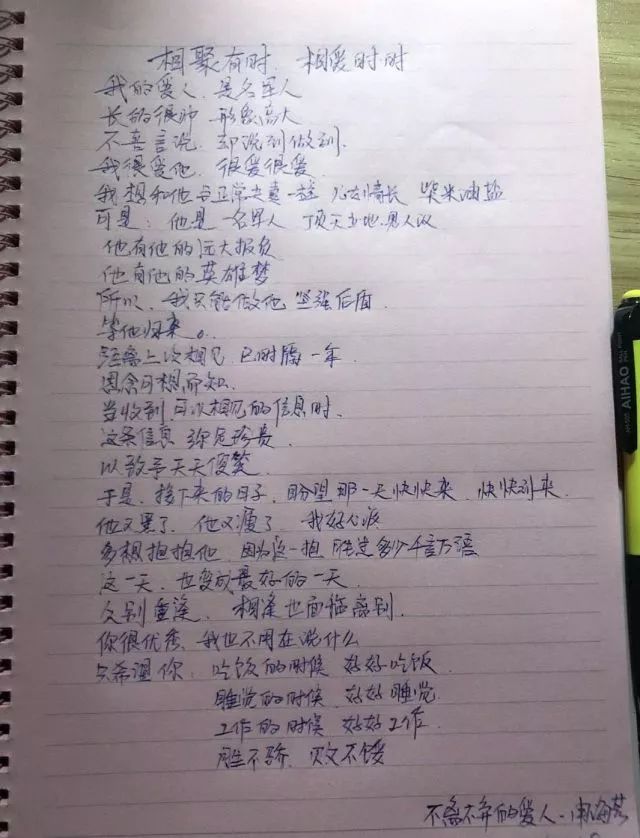 相聚有时 相爱时时
我的爱人，是名军人
长的很帅 形象高大
不喜言说 却说到做到.
我很爱他，很爱很爱
我想和他与正常夫妻一样 儿女情长 柴米油盐
可是，他是一名军人 顶天立地.男人汉
他有他的远大报负
他有他的英雄梦
所以、我只能做他 坚强后盾.
等他归来。
距离上次相见 已时隔一年.
思念可想而知.
当收到 再次相见的信息时、
这条信息 弥足珍贵
以致于天天傻笑
于是，接下来的日子，盼望那一天快快来 快快到来.
他又黑了、他又瘦了 我好心疼
多想抱抱他 因为这一抱 胜过多少千言万语
这一天，也变成最好的一天.
久别重逢、相逢也面临离别.
你很优秀、我也不用在说什么
只希望你：吃饭的时候 好好吃饭.
睡觉的时候 好好睡觉
工作的时候 好好工作.
胜不骄、败不馁
不离不弃的爱人-海
AIHAO